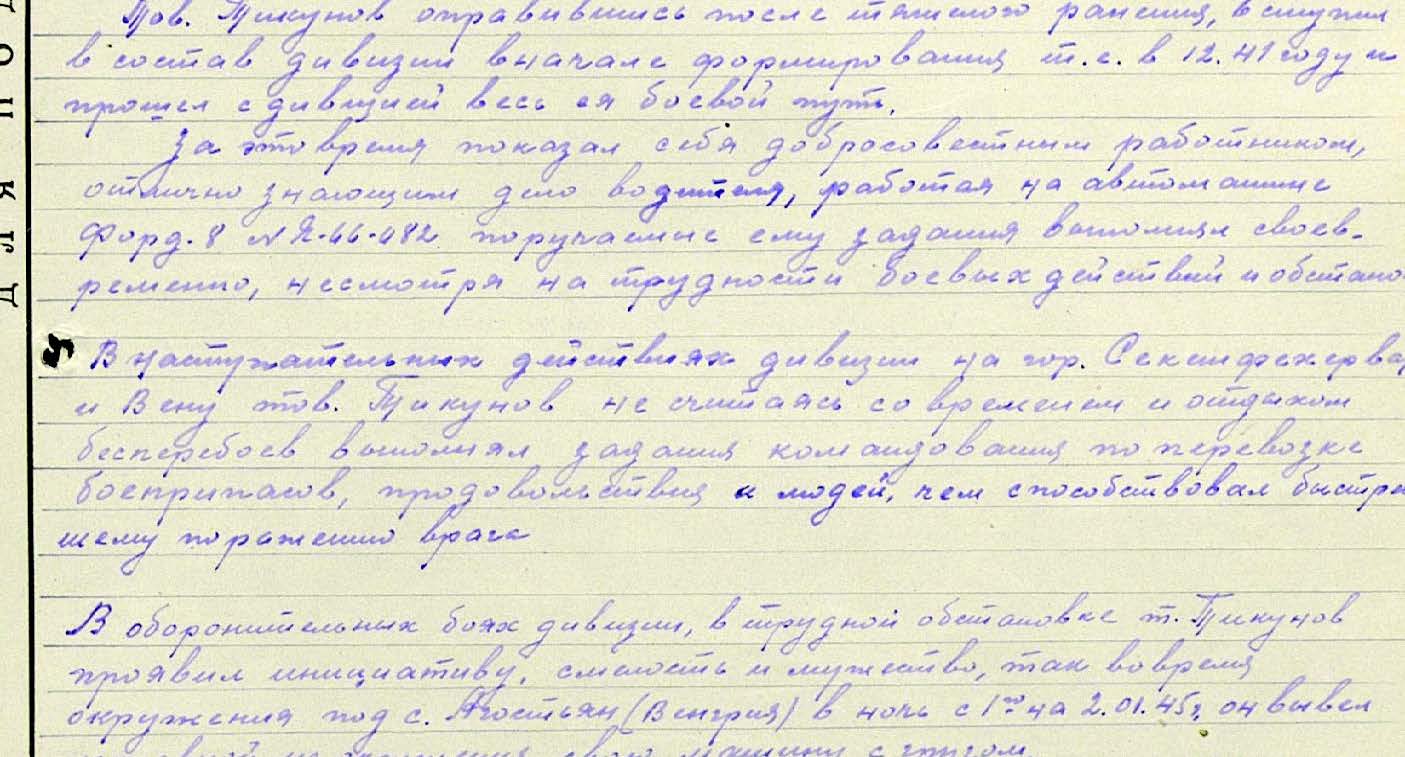 Тов. Тикунов оправившись после тяжелого ранения, вступил
в состав дивизии вначале формирования т.е. в 12.41 году и
прошел с дивизией весь ея боевой путь.
За это время показал себя добросовестным работником,
отлично знающим дело водителя, работая на автомашине
Форд-8 поручаемые ему задания выполнял своев-
ременно, несмотря на трудности боевых действий и обстано
В наступательных действиях дивизии на гор. Секешфехервар
и Вену тов. Тикунов не считаясь со временем и отдыхом
бесперебоев выполнял задания командования по перевозке
боеприпасов, продовольствия и людей, чем способствовал быстре
шему поражению врага
В оборонительных боях дивизии, в трудной обстановке т. Тикунов
проявил инициативу, смелость и мужество, так вовремя
окружения под с. Агостьян (Венгрия) в ночь с 1го на 2.01.45г. он вывел
свою машину с грузом
ДЛЯ ПОД